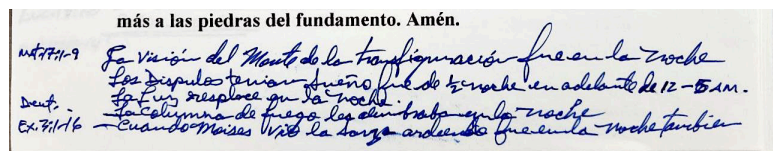 más a las piedras del fundamento. Amén.
Mat. 17:1-9 La Visión del Monte de la transfiguración fue en la noche
Los Disipulos tenian sueño fue de ½ noche en adelante de 12 - 5 AM.
La Luz resplace en la noche.
Deut. La Columna de fuego les alumbraba en la noche
Ex. 3:1-16 - Cuando Moises Vio la sarza ardiendo fue en la noche tambien